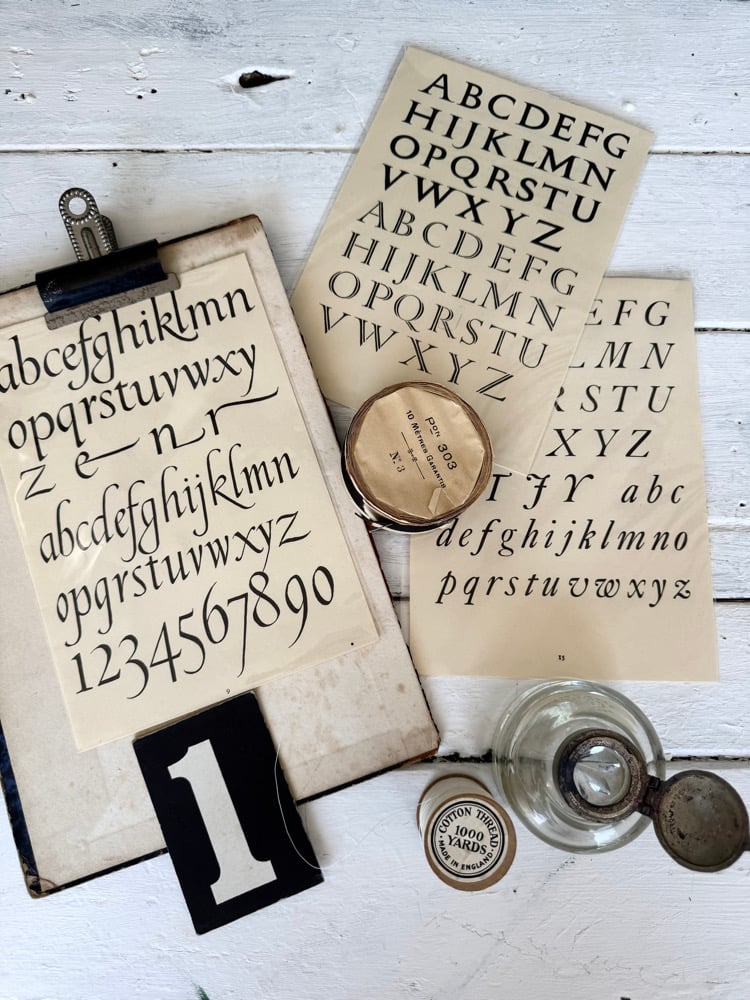 abcefghiklmn
opqrstuvwxy
z e n r
abcdefghijklmn
opqrstuvwxyz
1234567890
9
ABCDEFG
HIJKLMN
OPQRSTU
VWXYZ
ABCDEFG
HIJKLMN
OPQRSTU
VWXYZ
EFG
LMN
RSTU
XYZ
T J Y abc
defghijklmno
pqrstuvwxyz
15
PON 303
10 MÈTRES GARANTIS
No. 3
1
COTTON THREAD
1000
YARDS
MADE IN ENGLAND